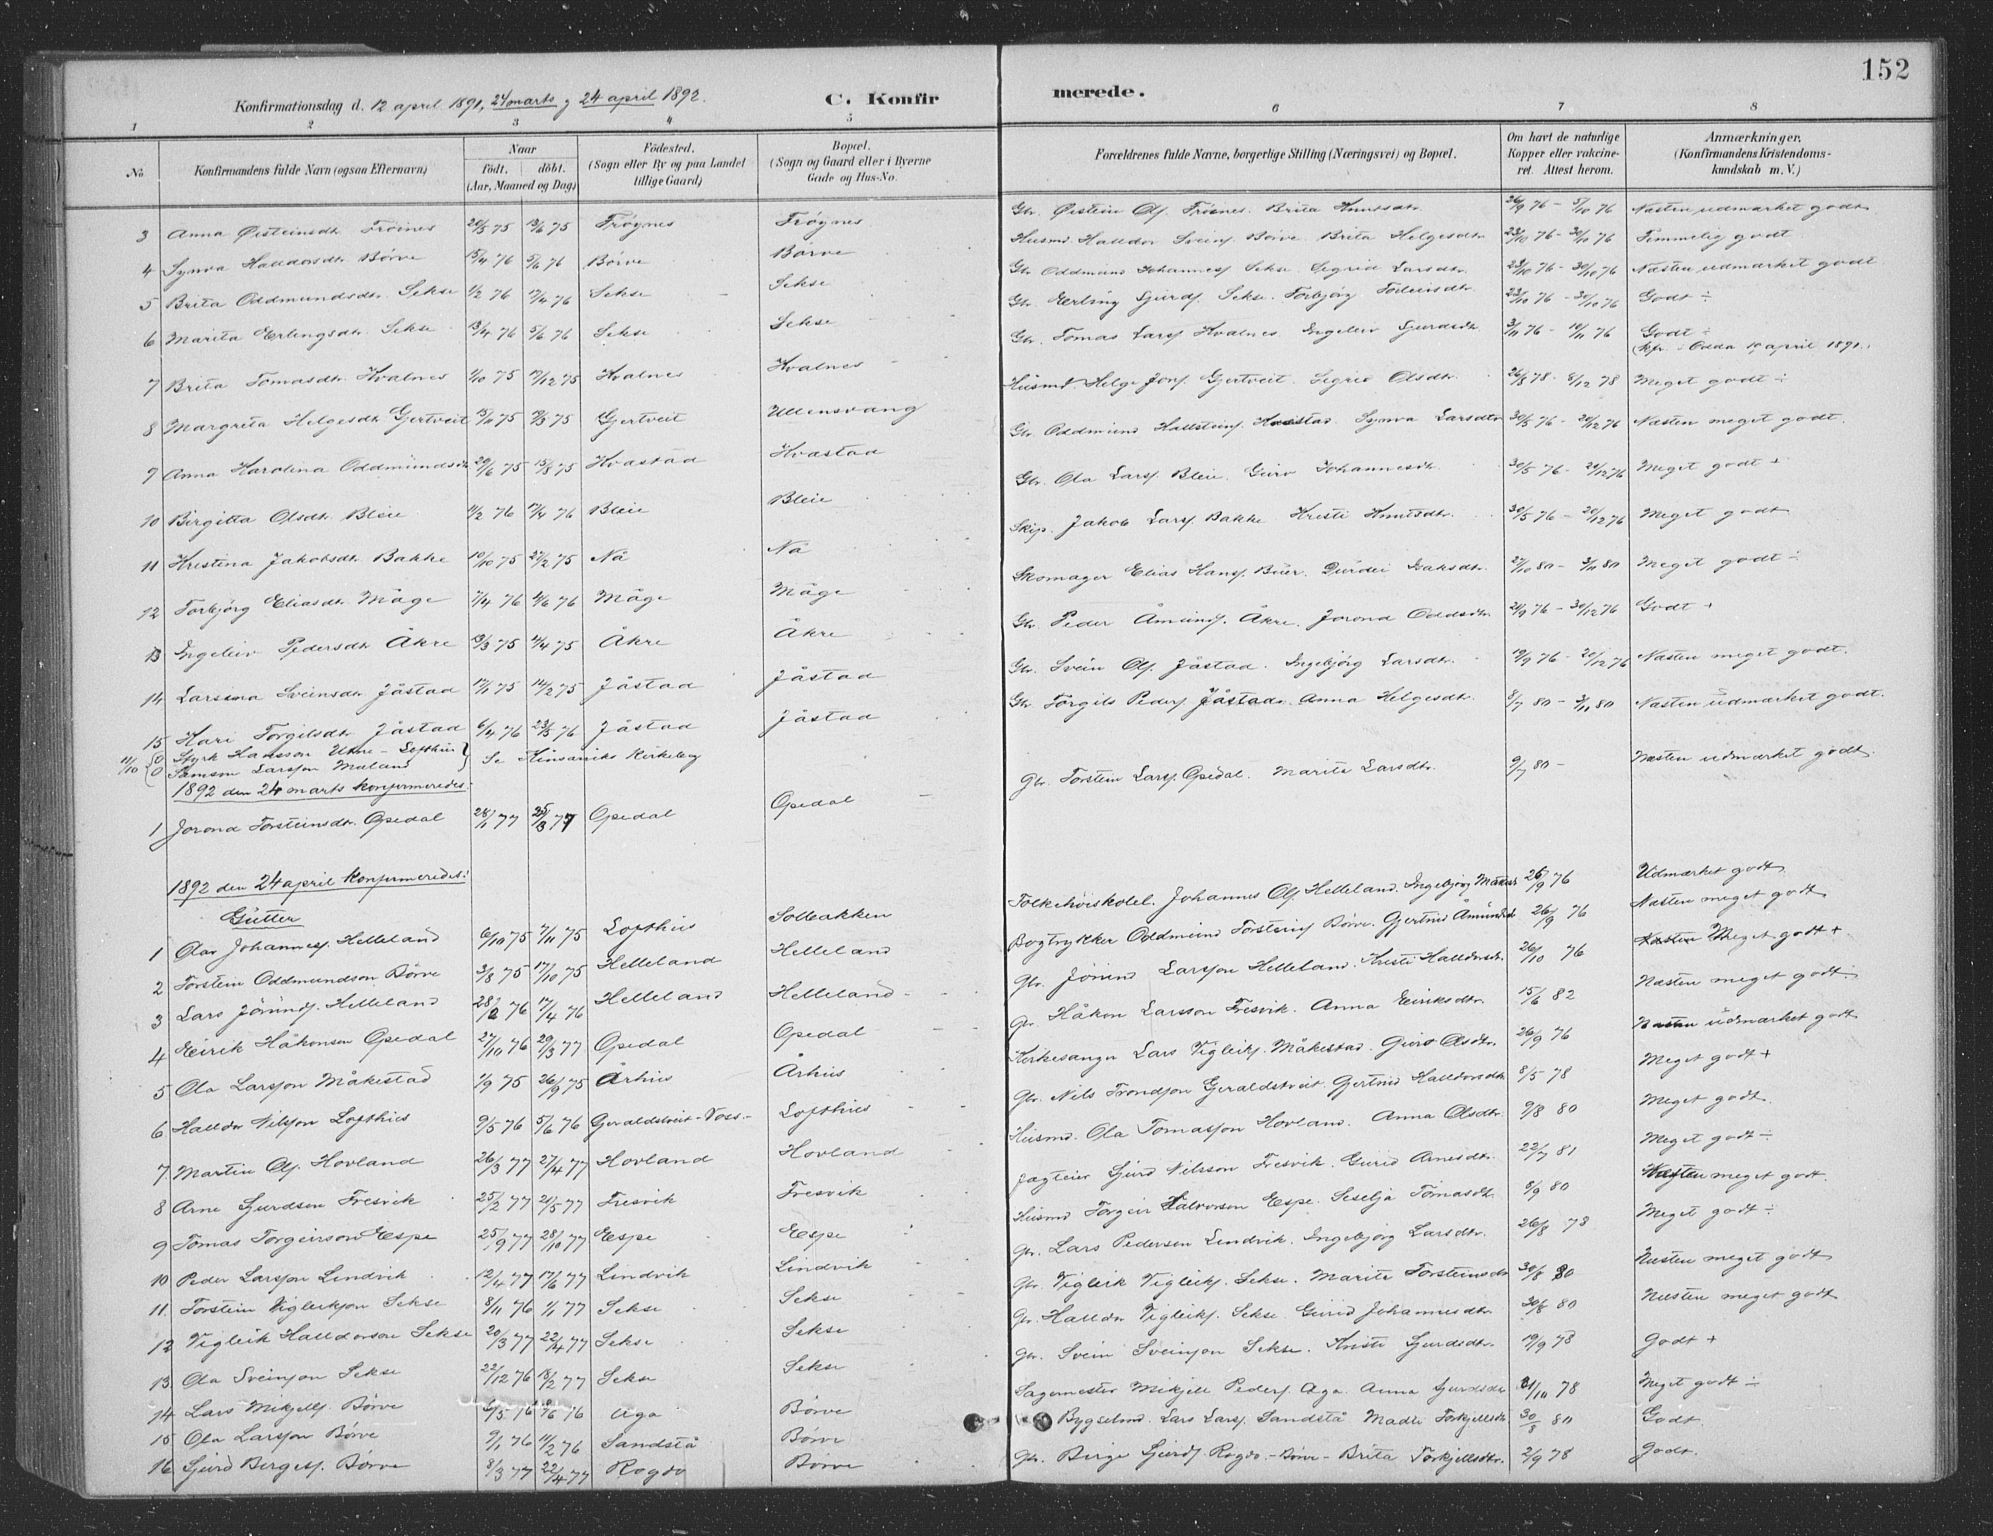 152
Konfirmationsdag d. 12 april 1891, 24 marts og 24 april 1892.
C. Konfir merede.
1 2 3 4 5 6 7 8
No
Konfirmandens fulde Navn (ogsaa Efternavn)
Naar
födt. döbt.
(Aar, Maaned og Dag)
Födested.
(Sogn eller By og paa Landet
tillige Gaard)
Bopæl.
(Sogn og Gaard eller i Byerne
Gade og Hus-No.
Forældrenes fulde Navne, borgerlige Stilling (Næringsvei) og Bopæl.
Om havt de naturlige
Kopper eller vakcine-
ret. Attest herom.
Anmærkninger,
(Konfirmandens Kristendoms-
kundskab m. V.)
3 Anna Øisteinsdtr. Fröines 20/5 75 13/6 75 Fröynes Fröynes Gbr. Øistein Ols. Fröines. Brita Knutsdtr. 26/9 76 - 5/10 76 Næsten udmærket godt
4 Synva Halldorsdtr. Börve 15/4 76 5/6 76 Börve Börve Husmd. Halldor Sveins. Börve. Brita Helgesdtr. 23/10 76 - 30/10 76 Temmelig godt
5 Brita Oddmundsdtr. Sekse 1/2 76 17/4 76 Sekse Sekse Gbr. Oddmund Johanness. Sekse. Sigrid Larsdtr. 23/10 76 - 30/10 76 Næsten udmærket godt
6 Marita Erlingsdtr. Sekse 13/4 76 5/6 76 Sekse Sekse Gbr. Erling Sjurds. Sekse. Torbjörg 23/10 76 - 30/10 76 Godt ÷
7 Brita Tomasdtr. Kvalnes 1/10 75 19/12 75 Kvalnes Kvalnes Gbr. Tomas Lars. Kvalnes. Ingeleiv Sjurdsdtr. 3/11 76 - 10/11 76 Godt ÷
(kfr. i Odda 19 april 1891.)
8 Margreta Helgesdtr. Gjertveit 15/11 75 75 Gjertveit Ullensvang Husmd. Helge Jons. Gjertveit. Sigrid Olsdtr. 26/8 78 - 8/12 78 Meget godt ÷
9 Anna Karolina Oddmundsdtr 20/6 75 15/8 75 Kvastad Kvastad Gbr. Oddmund Hallsteins. Kvastad. Synva Larsdtr. 30/5 76 - 20/12 76 Næsten meget godt.
10 Birgitta Olsdtr. Bleie 11/2 76 17/4 76 Bleie Bleie Gbr. Ola Lars. Bleie. Guro Johannesdtr. 30/5 76 - 20/12 76 Meget godt +
11 Kristina Jakobsdtr. Bakke 10/10 75 27/2 75 Nå Nå Skip. Jakob Lars. Bakke. Kristi Knutsdtr. 30/5 76 - 20/12 76 Meget godt
12 Torbjörg Eliasdtr. Måge 7/4 76 4/6 76 Måge Måge Skomager Elias Hans. Buer. Durdei Isaksdtr. 27/10 80 - 3/11 80 Meget godt ÷
13 Ingeleiv Pedersdtr. Åkre 13/3 75 4/4 75 Åkre Åkre Gbr. Peder Åmunds. Åkre. Jorond Oddsdtr. 20/9 76 - 30/12 76 Godt +
14 Larsina Sveinsdtr. Jåstad 17/1 75 14/2 75 Jåstad Jåstad Gbr. Svein Ols. Jåstad. Ingebjörg Larsdtr. 19/9 76 - 20/12 76 Næsten meget godt.
15 Kari Torgilsdtr. Jåstad 6/4 76 23/5 76 Jåstad Jåstad Gbr. Torgils Peders. Jåstad. Anna Helgesdtr. 8/7 80 - 3/11 80 Næsten udmærket godt.
11/10 0 Styrk Hansson Utne - Lofthus
0 Samson Larsson Muland } Se Kinsarviks Kirkebog
1892 den 24 marts konfirmeredes:
1 Jorond Torsteinsdtr. Opedal 28/1 77 25/3 77 Opedal Opedal Gbr. Torstein Lars. Opedal. Marita Larsdtr. 9/7 80 - Næsten udmærket godt.
1892 den 24 april konfirmeredes:
Gutter
1 Olav Johanness. Helleland 6/10 75 7/11 75 Lofthus Solbakken Folkehöiskolel. Johannes Ols. Helleland. Ingebjörg 26/9 76 Udmærket godt
2 Torstein Oddmundson Börve 3/8 75 17/10 75 Helleland Helleland Bogtrykker Oddmund Torsteins. Börve. Gjertrud Åmundsd 26/9 76 Næsten meget godt
3 Lars Jörunds. Helleland 28/2 76 17/4 76 Helleland Helleland Gbr. Jörund Larsson Helleland. Kristi Halldorsdtr. 26/10 76 Næsten Meget godt +
4 Eirik Håkonson Opedal 27/10 76 29/3 77 Opedal Opedal Gbr. Håkon Larsson Fresvik. Anna Eiriksdtr. 15/6 82 Næsten meget godt
5 Ola Larsson Måkestad 1/9 75 26/9 75 Århus Århus Kirkesanger Lars Vigleiks. Måkestad. Guro Olsdtr. 26/9 76 Næsten udmærket godt
6 Halldor Nilsson Lofthus 9/5 76 5/6 76 Geraldstveit - Voss - Lofthus Gbr. Nils Trondson Geraldstveit. Gjertrud Halldorsdtr 8/5 78 Meget godt +
7 Martin Ols. Hovland 26/3 77 27/4 77 Hovland Hovland Husmd. Ola Tomasson Hovland. Anna Olsdtr. 9/8 80 Meget godt.
8 Arne Sjurdson Fresvik 25/2 77 21/5 77 Fresvik Fresvik Jagteier Sjurd Nilsson Fresvik. Gurid Arnesdtr. 22/7 81 Meget godt ÷
9 Tomas Torgeirson Espe 25/9 77 28/10 77 Espe Espe Husmd Torgeir Halvorson Espe. Seselja Tomasdtr. 8/9 80 Næsten meget godt.
10 Peder Larsson Lindvik 12/4 77 17/6 77 Lindvik Lindvik Gbr. Lars Pedersen Lindvik. Ingebjörg Larsdtr. 26/8 78 Meget godt ÷
11. Torstein Vigleiksson Sekse 8/11 76 1/1 77 Sekse Sekse Gbr. Vigleik Vigleiks. Sekse. Marita Torsteinsdtr 30/8 80 Næsten meget godt
12 Vigleik Halldorson Sekse 20/3 77 22/4 77 Sekse Sekse Gbr. Halldor Vigleiks. Sekse. Gurid Johannesdtr. 30/8 80 Næsten meget godt
13. Ola Sveinson Sekse 22/12 76 18/2 77 Sekse Sekse Gbr. Svein Sveinson Sekse. Kristi Sjurdsdtr. 19/9 78 Godt +
14 Lars Mikjells. Börve /5 76 /6 76 Aga Börve Sagemester Mikjell Peders. Aga. Anna Sjurdsdtr 31/10 78 Meget godt ÷
15 Ola Larsson Börve 9/1 76 11/2 76 Sandstå Börve Bygselmd. Lars Lars. Sandstå. Madli Torkjellsdtr 30/8 80 Godt.
16 Sjurd Berges. Börve 8/3 77 22/4 77 Rogdo Börve Gbr. Birge Sjurds. Rogdo - Börve - Brita Torkjellsdtr. 2/9 78 Godt.